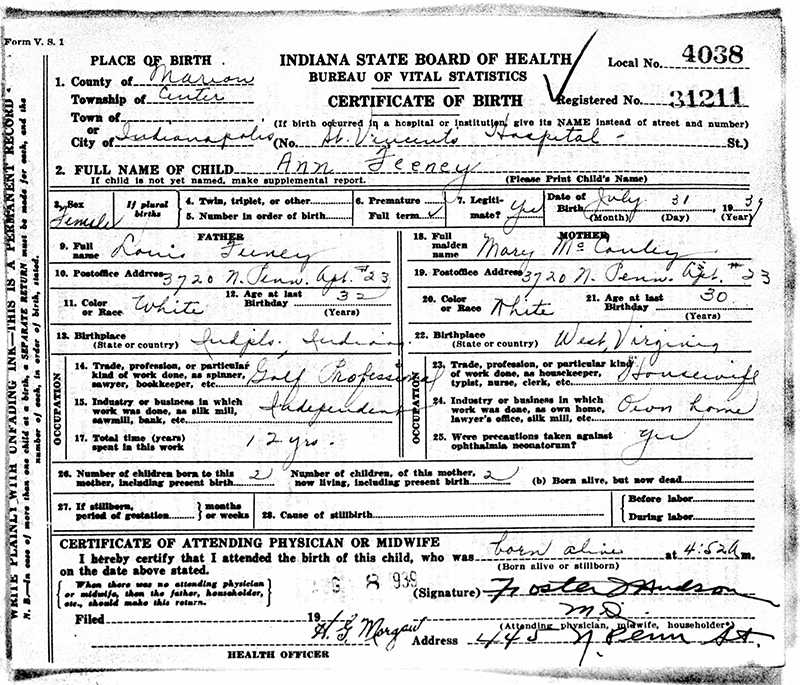 Form V. S. 1
PLACE OF BIRTH
INDIANA STATE BOARD OF HEALTH
BUREAU OF VITAL STATISTICS
CERTIFICATE OF BIRTH
Local No. 4038
Registered No. 31211
1. County of Marion
Township of Center
Town of
or
City of Indianapolis
(If birth occurred in a hospital or institution, give its NAME instead of street and number)
(No. St. Vincents Hospital - St.)
2. FULL NAME OF CHILD Ann Feeney
If child is not yet named, make supplemental report. (Please Print Child's Name)
3. Sex Female
If plural births
4. Twin, triplet, or other
5. Number in order of birth
6. Premature
Full term ✓
7. Legitimate? Yes
Date of Birth July 31, 1939
(Month) (Day) (Year)
FATHER
9. Full name Louis Feeney
10. Postoffice Address 3720 N. Penn. Apt. #23
11. Color or Race White
12. Age at last Birthday 32
(Years)
13. Birthplace Indpls, Indiana
(State or country)
OCCUPATION
14. Trade, profession, or particular kind of work done, as spinner, sawyer, bookkeeper, etc. Golf Professional
15. Industry or business in which work was done, as silk mill, sawmill, bank, etc. Independent
17. Total time (years) spent in this work 12 yrs.
MOTHER
18. Full maiden name Mary McConley
19. Postoffice Address 3720 N. Penn. Apt. #23
20. Color or Race White
21. Age at last Birthday 30
(Years)
22. Birthplace West Virginia
(State or country)
OCCUPATION
23. Trade, profession, or particular kind of work done, as housekeeper, typist, nurse, clerk, etc. Housewife
24. Industry or business in which work was done, as own home, lawyer's office, silk mill, etc. Own home
25. Were precautions taken against ophthalmia neonatorum? Yes
26. Number of children born to this mother, including present birth 2
Number of children, of this mother, now living, including present birth 2
(b) Born alive, but now dead
27. If stillborn, period of gestation
months or weeks
28. Cause of stillbirth
Before labor
During labor
CERTIFICATE OF ATTENDING PHYSICIAN OR MIDWIFE
I hereby certify that I attended the birth of this child, who was born alive at 4:52 A m.
on the date above stated. (Born alive or stillborn)
When there was no attending physician or midwife, then the father, householder, etc., should make this return.
8 939
(Signature) Foster J Hudson
M.D.
(Attending physician, midwife, householder)
Filed 19
H. G. Morgan
HEALTH OFFICER
Address 445 N. Penn St.
WRITE PLAINLY WITH UNFADING INK—THIS IS A PERMANENT RECORD
N. B.—In case of more than one child at a birth, a SEPARATE RETURN must be made for each, and the number of each, in order of birth, stated.